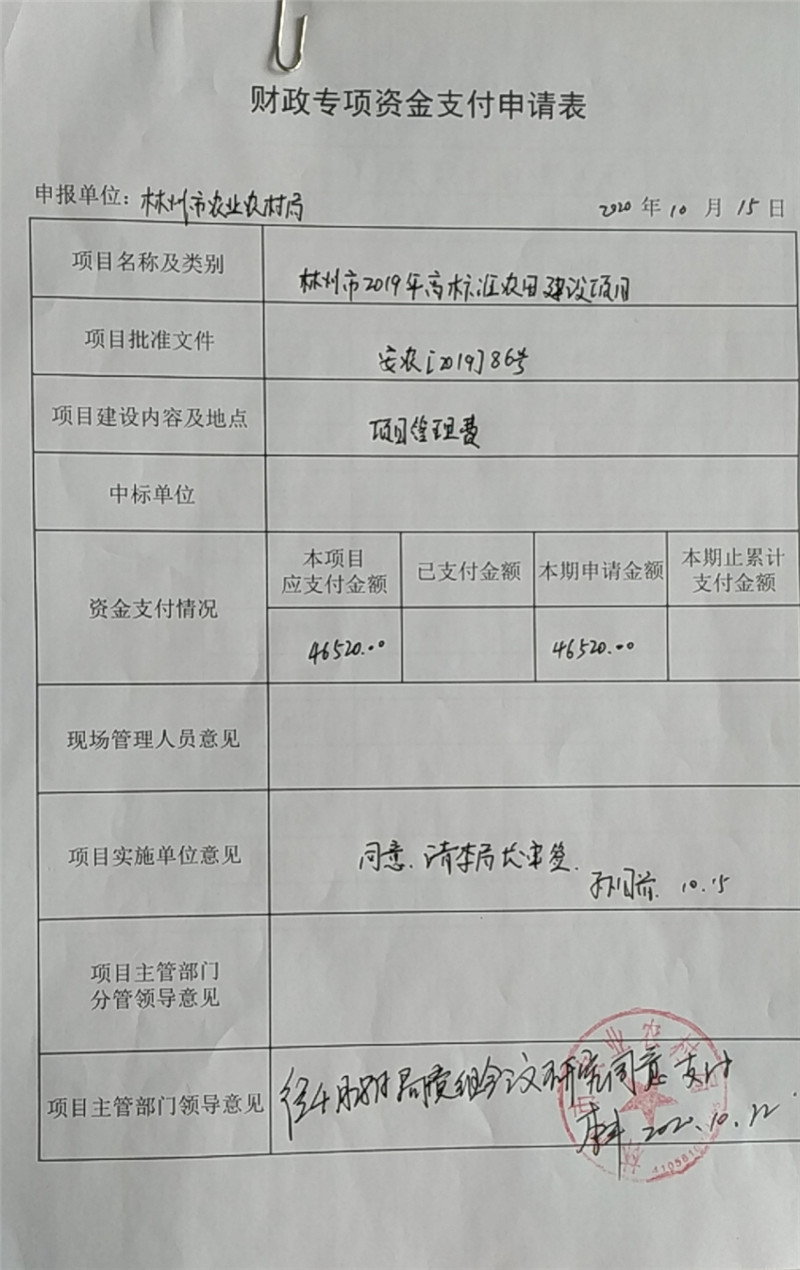 财政专项资金支付申请表
申报单位：林州市农业农村局 2020年10月15日
项目名称及类别 林州市2019年高标准农田建设项目
项目批准文件 安农[2019]86号
项目建设内容及地点 项目管理费
中标单位
资金支付情况
本项目应支付金额 已支付金额 本期申请金额 本期止累计支付金额
46520.00 46520.00
现场管理人员意见
项目实施单位意见 同意.请李局长审签.
10.15
项目主管部门
分管领导意见
项目主管部门领导意见 经4月 局党组会议研究同意支付
2020.10.22